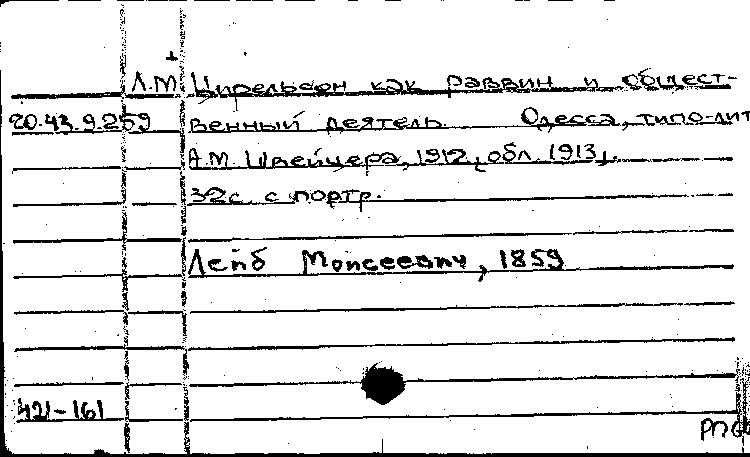 Л.М. Цирельсон как раввин и общест-
20.43.9.259 венный деятель. Одесса, типо-лит
А.М. Швейцера, 1912, [обл. 1913].
32с. с портр.
Лейб Моисеевич, 1859
421-161